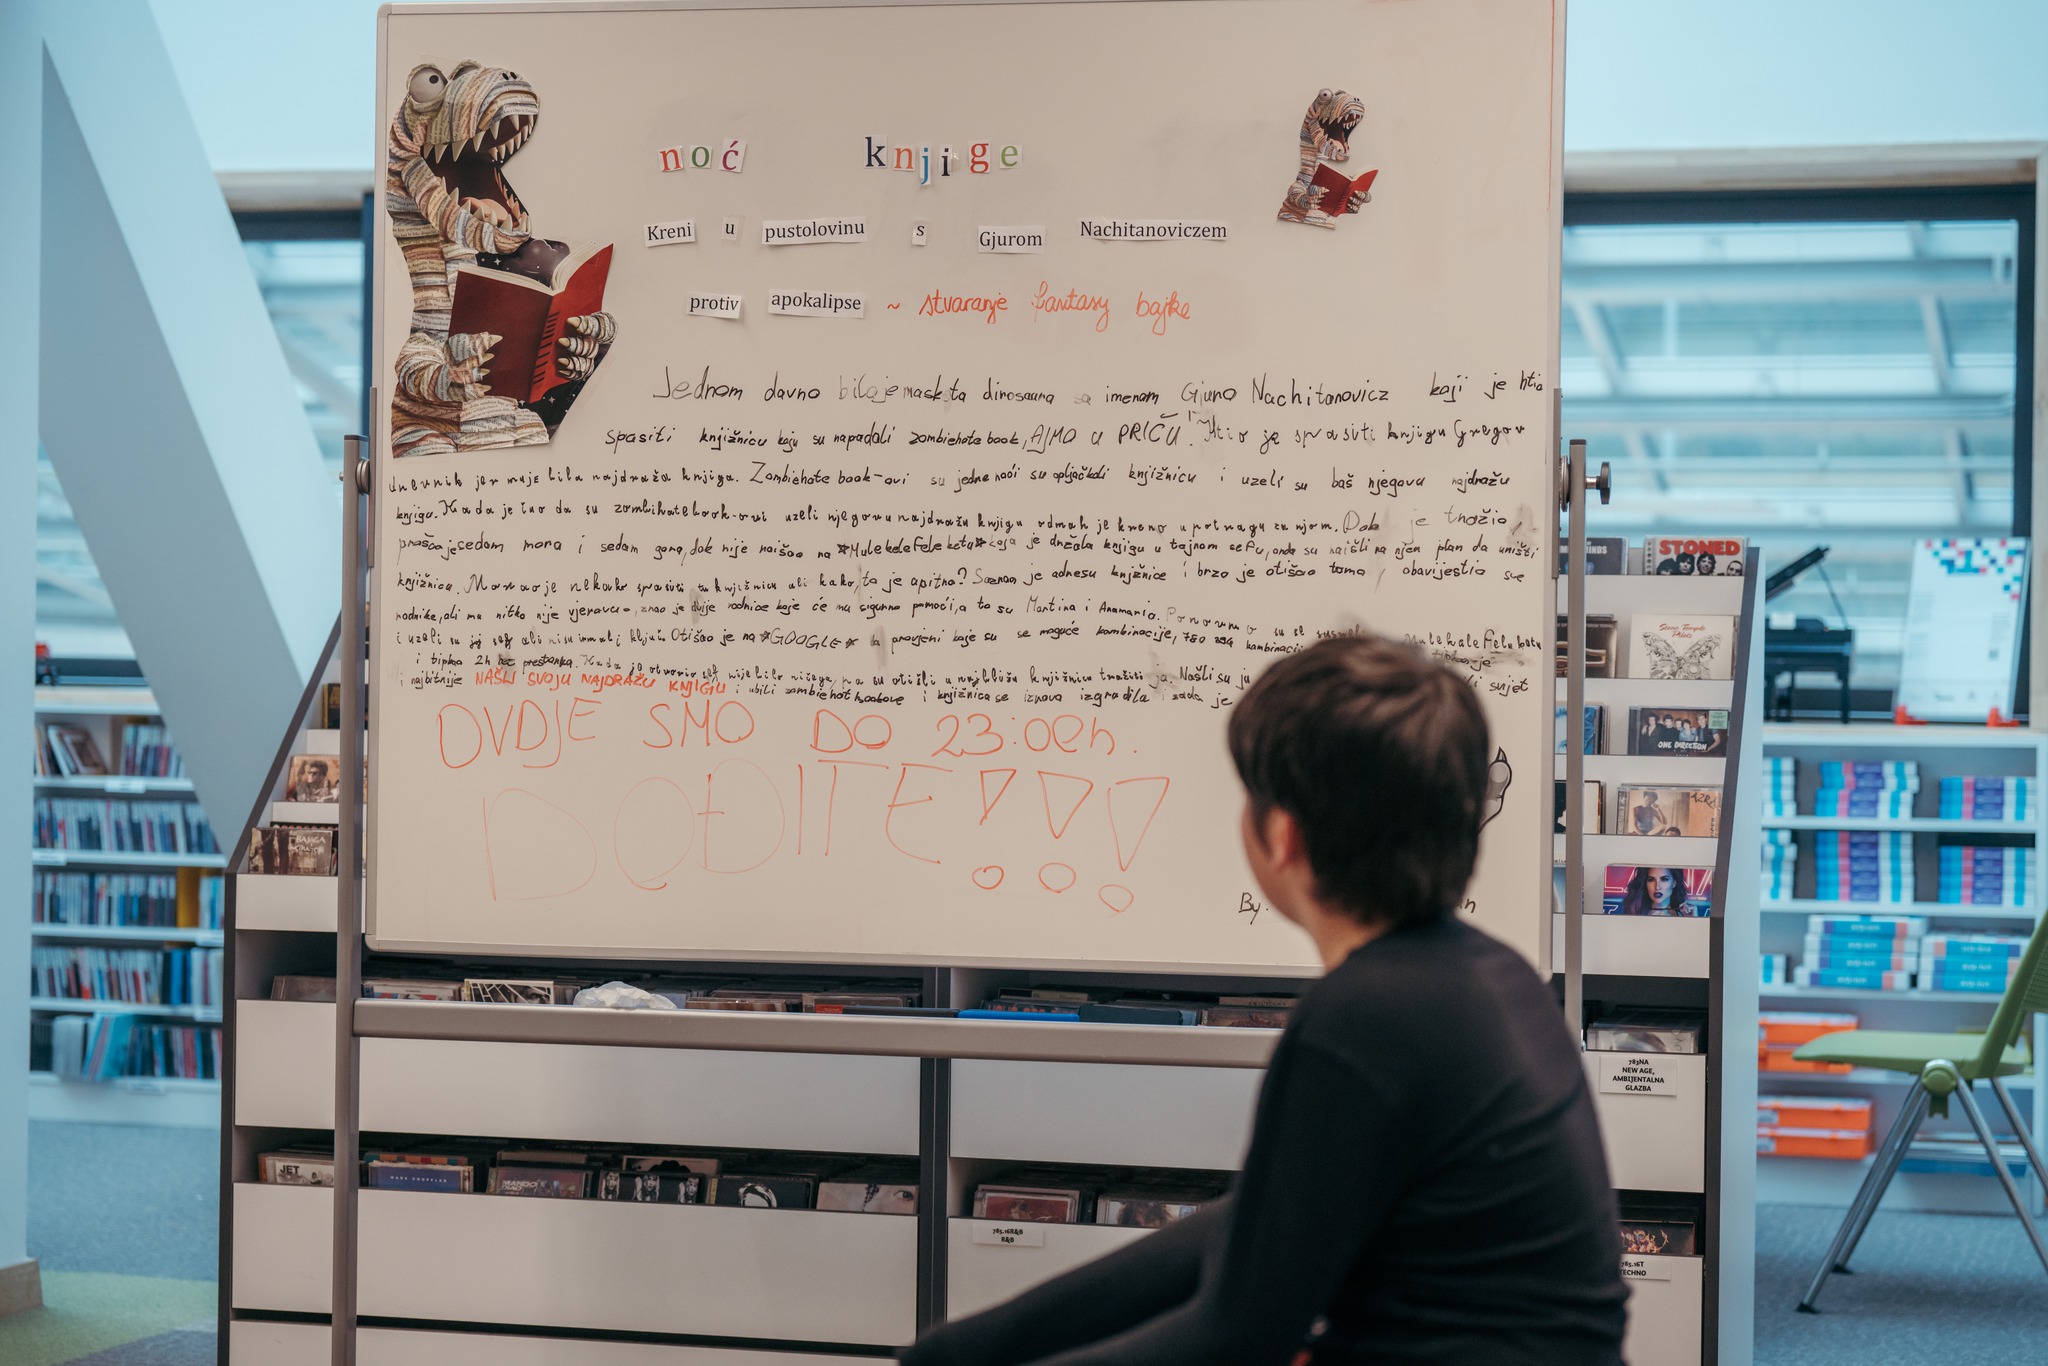 noć knjige
Kreni u pustolovinu s Gjurom Nachitanoviczem
protiv apokalipse ~ stvaranje fantasy bajke
Jednom davno bila je maskota dinosaura sa imenom Gjuro Nachitanovicz koji je htio
spasiti knjižnicu koju su napadali zombiehatebook, AJMO U PRIČU! Htio je spasiti knjigu Gregov
dnevnik jer mu je bila najdraža knjiga. Zombiehatebook-ovi su jedne noći su opljačkali knjižnicu i uzeli su baš njegovu najdražu
knjigu. Kada je čuo da su zombihatebook-ovi uzeli njegovu najdražu knjigu odmah je kreno u potragu za njom. Dok je tražio,
prošao je sedam mora i sedam gora, dok nije naišao na koja je držala knjigu u tajnom sefu, onda su naišli na njen plan da uništi
knjižnicu. Morao je nekako spasiti tu knjižnicu ali kako, to je upitno? Saznao je adresu knjižnice i brzo je otišao tamo, obavijestio sve
rodnike, ali mu nitko nije vjerovao, znao je dvije rodnice koje će mu sigurno pomoći, a to su Martina i Anamaria. Ponovno su
i uzeli su joj sef ali nisu imali ključ. Otišao je na *GOOGLE* da provjeri koje su se moguće kombinacije, 780 kombinacija
i tipkao 2h bez prestanka. Kada je otvorio sef nije bilo ničega, pa su otišli u najbližu knjižnicu tražiti ja. Našli su ju svijet
i najbitnije NAŠLI SVOJU NAJDRAŽU KNJIGU i ubili i knjižnica se iznova izgradila i sada je
OVDJE SMO DO 23:00h.
DOĐITE!!!
By.
STONED
ONE DIRECTION
783NA
NEW AGE,
AMBIJENTALNA
GLAZBA
JET
785.16R&B
R&B
785.16T
TECHNO